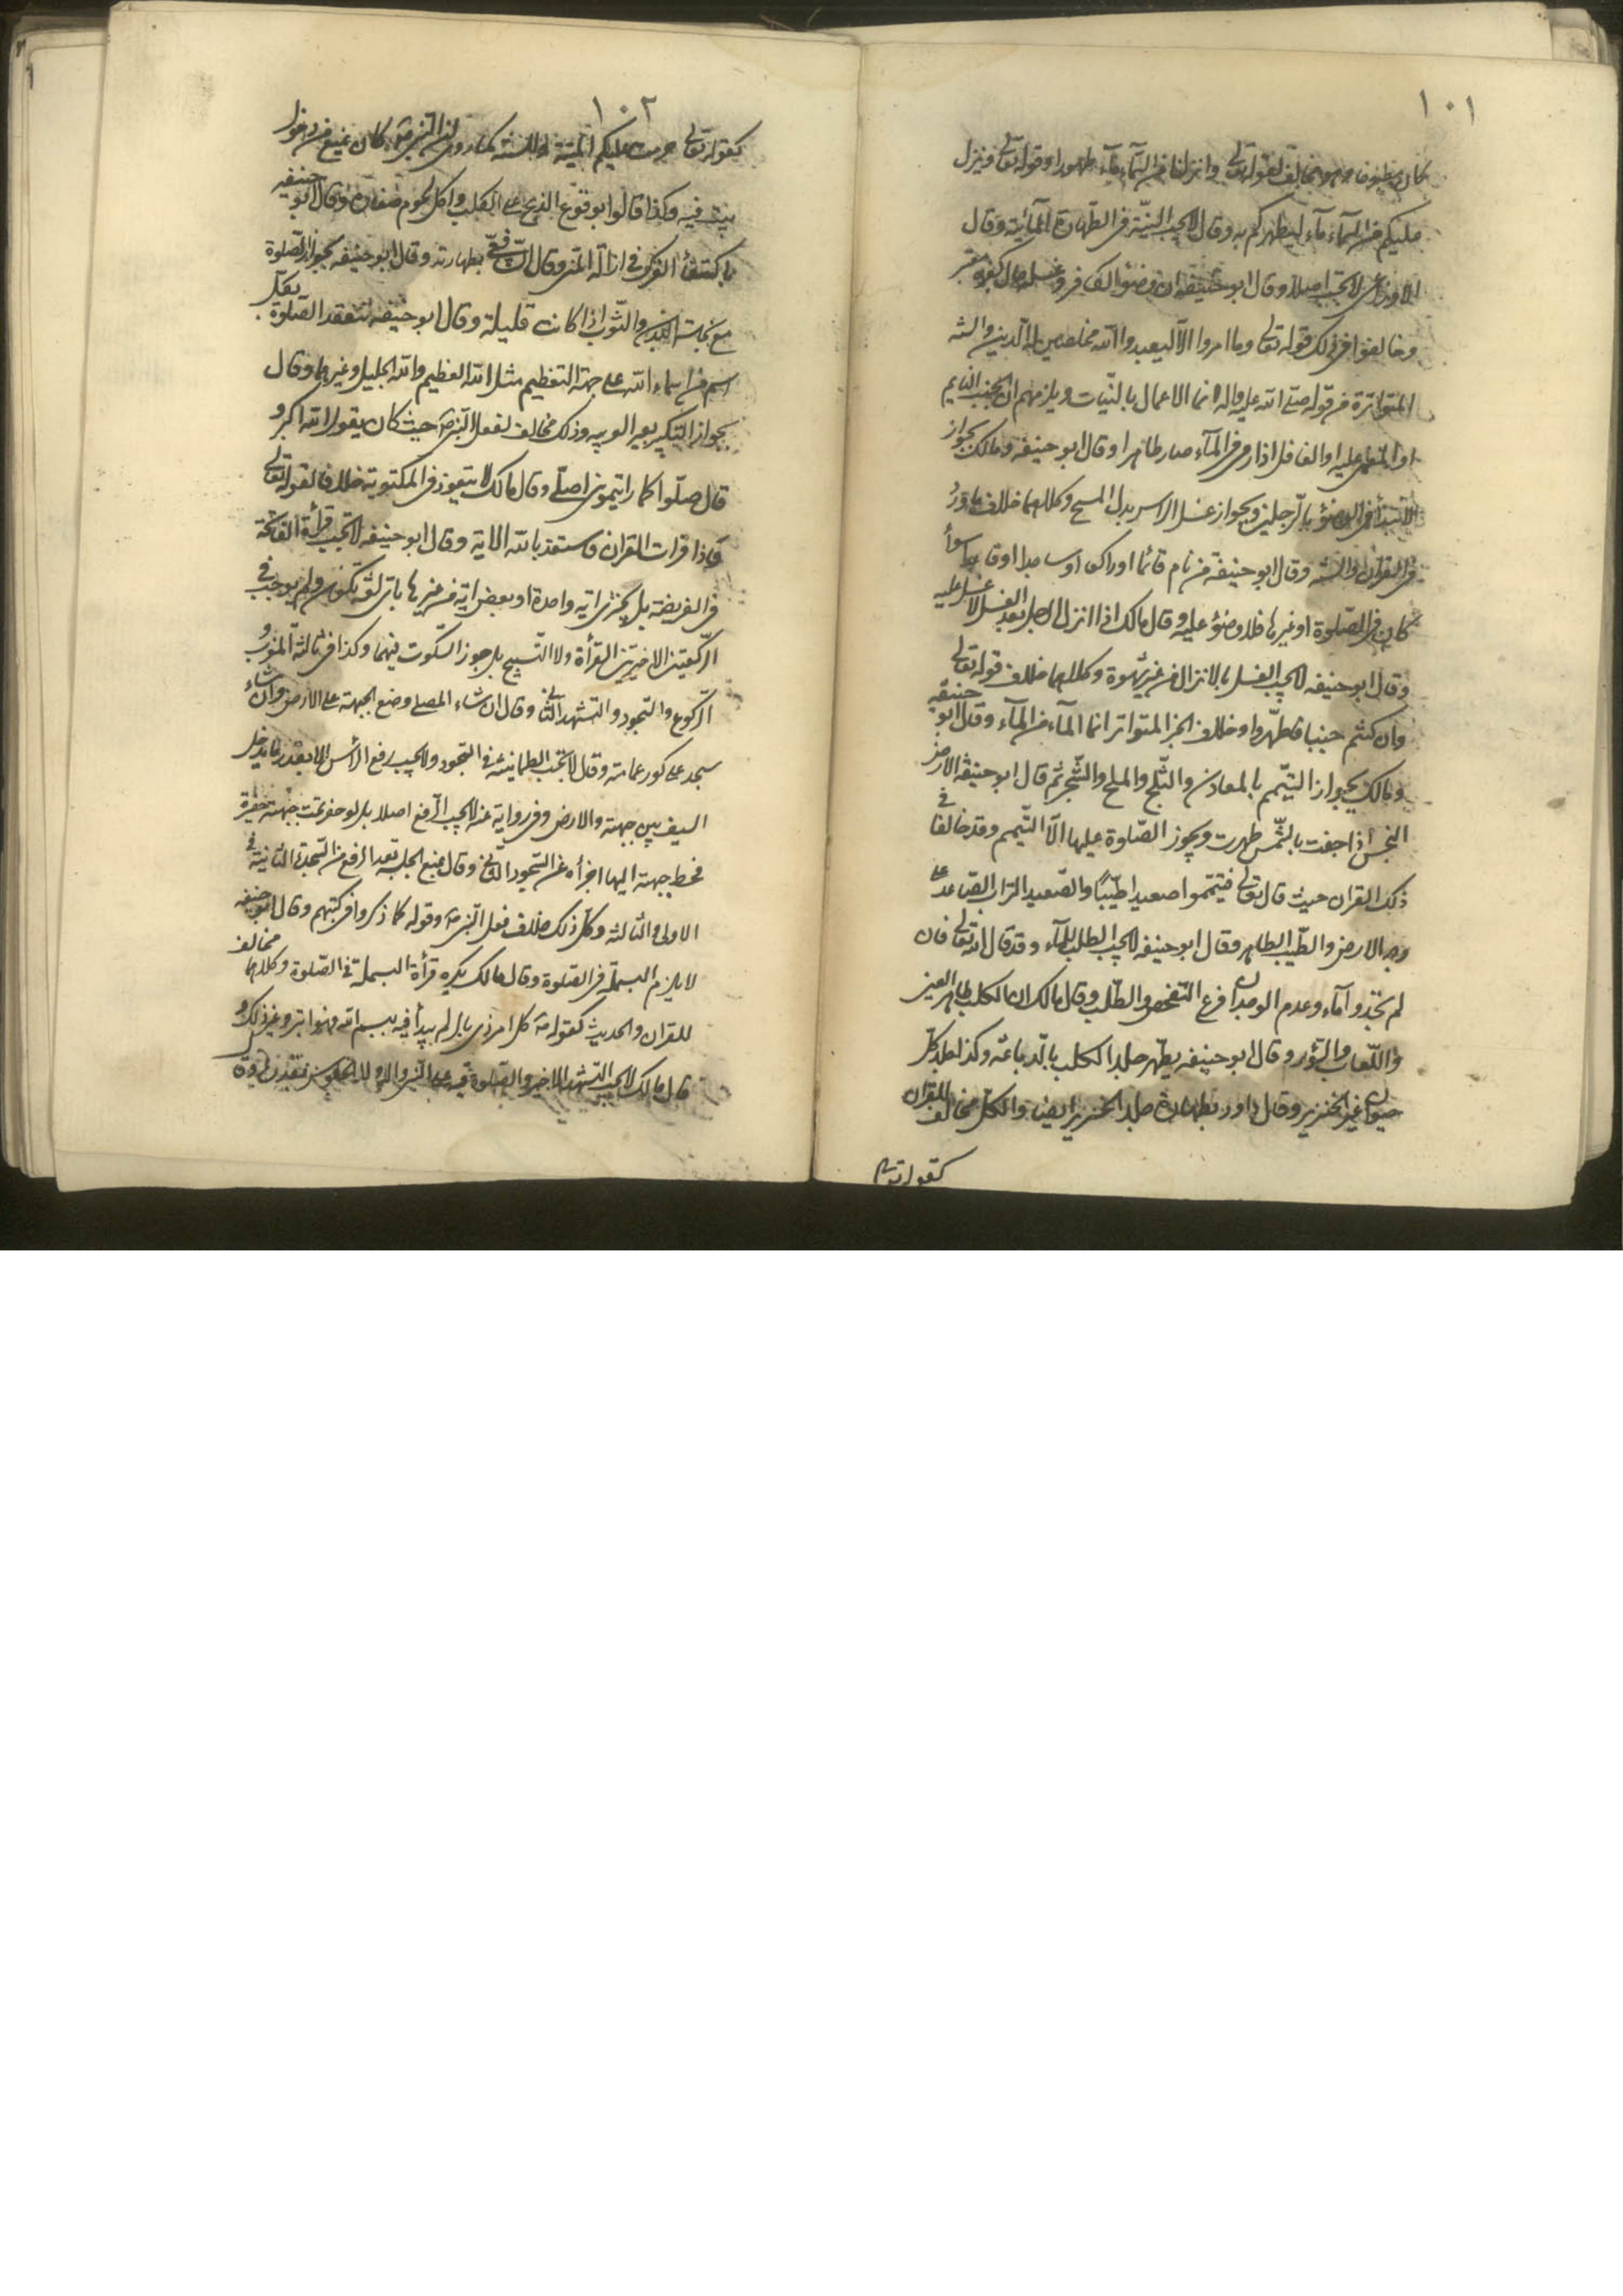 ١٠١
كان مطبوخا وهو مخالف لقوله تعالى وانزلنا من السّمآء مآء طهورا وقوله تعالى وينزل
عليكم من السّمآء مآء ليطهركم به وقال لا يجب النيّة فى الطّهارة المائية وقال
الاوزاعى لا تجب اصلا وقال ابو حنيفه ان وضوء الكافر وغسله حال كفره معتبر
وخالفوا فى ذلك قوله تعالى وما امروا الّا ليعبدوا اللّه مخلصين له الدّين والسّنه
المتواترة من قوله صلى اللّه عليه واله انما الاعمال بالنّيّات ويلزمهم ان الجنب النايم
او المغمى عليه او الغافل اذا رمى فى المآء صار طاهرا وقال ابو حنيفه ومالك بجواز
الابتدأ فى الوضوء بالرّجلين وبجواز غسل الراس بدل المسح وكلاهما خلاف ما ورد
فى القران والسّنه وقال ابو حنيفة من نام قائما او راكعا او ساجدا او قاعدا سوأ
كان فى الصّلوة او غيرها فلا وضوء عليه وقال مالك اذا انزل الرجل بعد الغسل لا غسل عليه
وقال ابو حنيفه لا يجب الغسل بالانزال من غير شهوة وكلاهما خلاف قوله تعالى
وان كنتم جنبا فاطهّروا وخلاف الخبر المتواتر انما المآء من المآء وقال ابو حنيفه
ومالك بجواز التيّمم بالمعادن والثّلج والملح والشّجر ثم قال ابو حنيفه الارض
النجس اذا جفت بالشّمس طهرت ويجوز الصّلاوة عليها الّا التيّمم وقد خالفا فى
ذلك القران حيث قال تعالى فتيمّموا صعيدا طيّبًا والصّعيد التراب الصّاعد على
وجه الارض والطّيب الطاهر وقال ابو حنيفه لا يجب الطلب للمآء وقد قال اللّه تعالى فان
لم تجدوا مآء وعدم الوجدان فرع التّفحص والطّلب وقال مالك ان الكلب طاهر العين
واللّعاب والسّؤر وقال ابو حنيفه يطّهر جلد الكلب بالدّباغه وكذا جلد كلّ
حيوان غير الخنزير وقال داود بطهارة جلد الخنزير ايضا والكلّ مخالف للقران
كقوله تعالى
١٠٢
كقوله تعالى حرمت عليكم الميتة وللسنّة كما روى ان النبى ص كان يمتنع من دخول
بيت فيه وكذا قالوا بوقوع الذبح على الكلب واكل لحوم ضفادع وقال ابو حنيفه
باكتفاء الفرك فى ازالة المنى وقال الشافعىّ بطهارته وقال ابو حنيفه بجواز الصّلوة
مع نجاسة البدن والثّوب اذا كانت قليلة وقال ابو حنيفه تنعقد الصّلوة بكلّ
اسم من اسماء اللّه على جهة التعظيم مثل اللّه العظيم واللّه الجليل وغيرها وقال
بجواز التّكبير بغير العربيه وذلك مخالف لفعل النّبى ص حيث كان يقول اللّه اكبر و
قال صلّوا كما رايتمونى اصلّى وقال مالك لا يتعوز فى المكتوبة خلافا لقوله تعالى
فاذا قرات القران فاستعذ باللّه الاية وقال ابو حنيفه لا تجب قرأة الفاتحة
فى الفريضه بل يجزى اية واحدة او بعض اية من غيرها باى لغة تكون ولم يوجب فى
الرّكعتين الاخيرتين القرأة ولا التّسبيح بل جوز السّكوت فيهما وكذا فى ثالثة المغرب و
الرّكوع والسّجود والتّشهد الثّانى وقال ان شاء المصلى وضع الجبهة على الارض وان شاء
سجد على كور عمامته وقال لا تجب الطمانينة فى السّجود ولا يجب رفع الرأس الّا بقدر ما يدخل
السيف بين جبهته والارض وفى رواية عنه لا يجب الرّفع اصلا بل لو حفر تحت جبهته حفيرة
فحط جبهته اليها اجزأه عن السّجود الثّانى وقال بمنع الجلسة بعد الرفع من السّجدة الثانية فى
الاولى والثالثة وكلّ ذلك خلاف فعل النّبى ص وقوله كما ذكروا فى كتبهم وقال ابو حنيفه
لا يلزم البسملة فى الصّلوة وقال مالك يكره قرأة البسملة فى الصّلوة وكلاهما مخالف
للقران والحديث كقوله ص كل امر ذى بال لم يبدأ فيه ببسم اللّه فهو ابتر وغير ذلك و
قال مالك لا يجب التّشهد الاخير والصّلوة فيه على النّبى واله ولا الجلوس